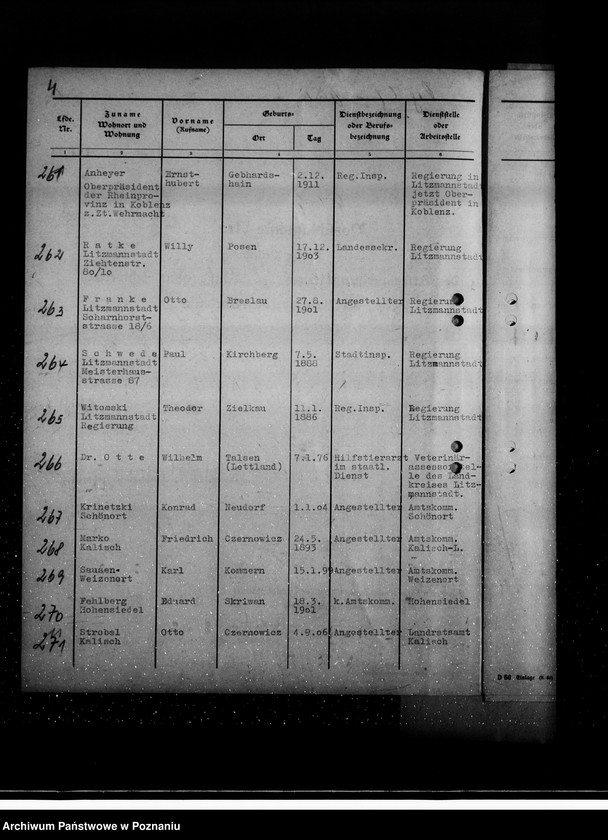 4
Lfde. Nr. | Zuname Wohnort und Wohnung | Vorname (Rufname) | Geburts- Ort | Tag | Dienstbezeichnung oder Berufs- bezeichnung | Dienststelle oder Arbeitsstelle
1 2 3 4 5 6
261 Anheyer Ernst- Gebhards- 2.12. Reg.Insp. Regierung in
hubert hain 1911 Litzmannstadt
Oberpräsident jetzt Ober-
der Rheinpro- präsident in
vinz in Koblenz Koblenz.
z.Zt.Wehrmacht
262 R a t k e Willy Posen 17.12. Landessekr. Regierung
Litzmannstadt 1903 Litzmannstadt
Ziehtenstr.
80/10
263 F r a n k e Otto Breslau 27.8. Angestellter Regierung
Litzmannstadt 1901 Litzmannstadt
Scharnhorst-
strasse 18/6
264 S c h w e d e Paul Kirchberg 7.5. Stadtinsp. Regierung
Litzmannstadt 1888 Litzmannstadt
Meisterhaus-
strasse 87
265 Witomski Theodor Zielkau 11.1. Reg.Insp. Regierung
Litzmannstadt 1886 Litzmannstadt
Regierung
266 Dr. O t t e Wilhelm Talsen 7.1.76 Hilfstierarzt Veterinär-
(Lettland) im staatl.
Dienst le des Land-
kreises Litz-
mannstadt.
267 Krinetzki Konrad Neudorf 1.1.04 Angestellter Amtskomm.
Schönort Schönort
268 Marko Friedrich Czernowicz 24.5. Angestellter Amtskomm.
Kalisch 1893 Kalisch-L.
269 Karl Kommern 15.1.99 Angestellter Amtskomm.
Weizenort Weizenort
270 Fehlberg Eduard Skriwan 18.3. k.Amtskomm. Hohensiedel
Hohensiedel 1901
271 Strobel Otto Czernowicz 4.9.06 Angestellter Landratsamt
Kalisch Kalisch
D 66 Einlage
Archiwum Państwowe w Poznaniu